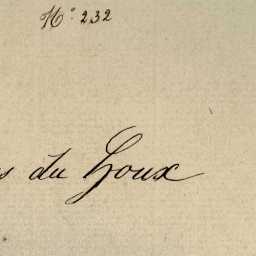 N° 232
s du Houx